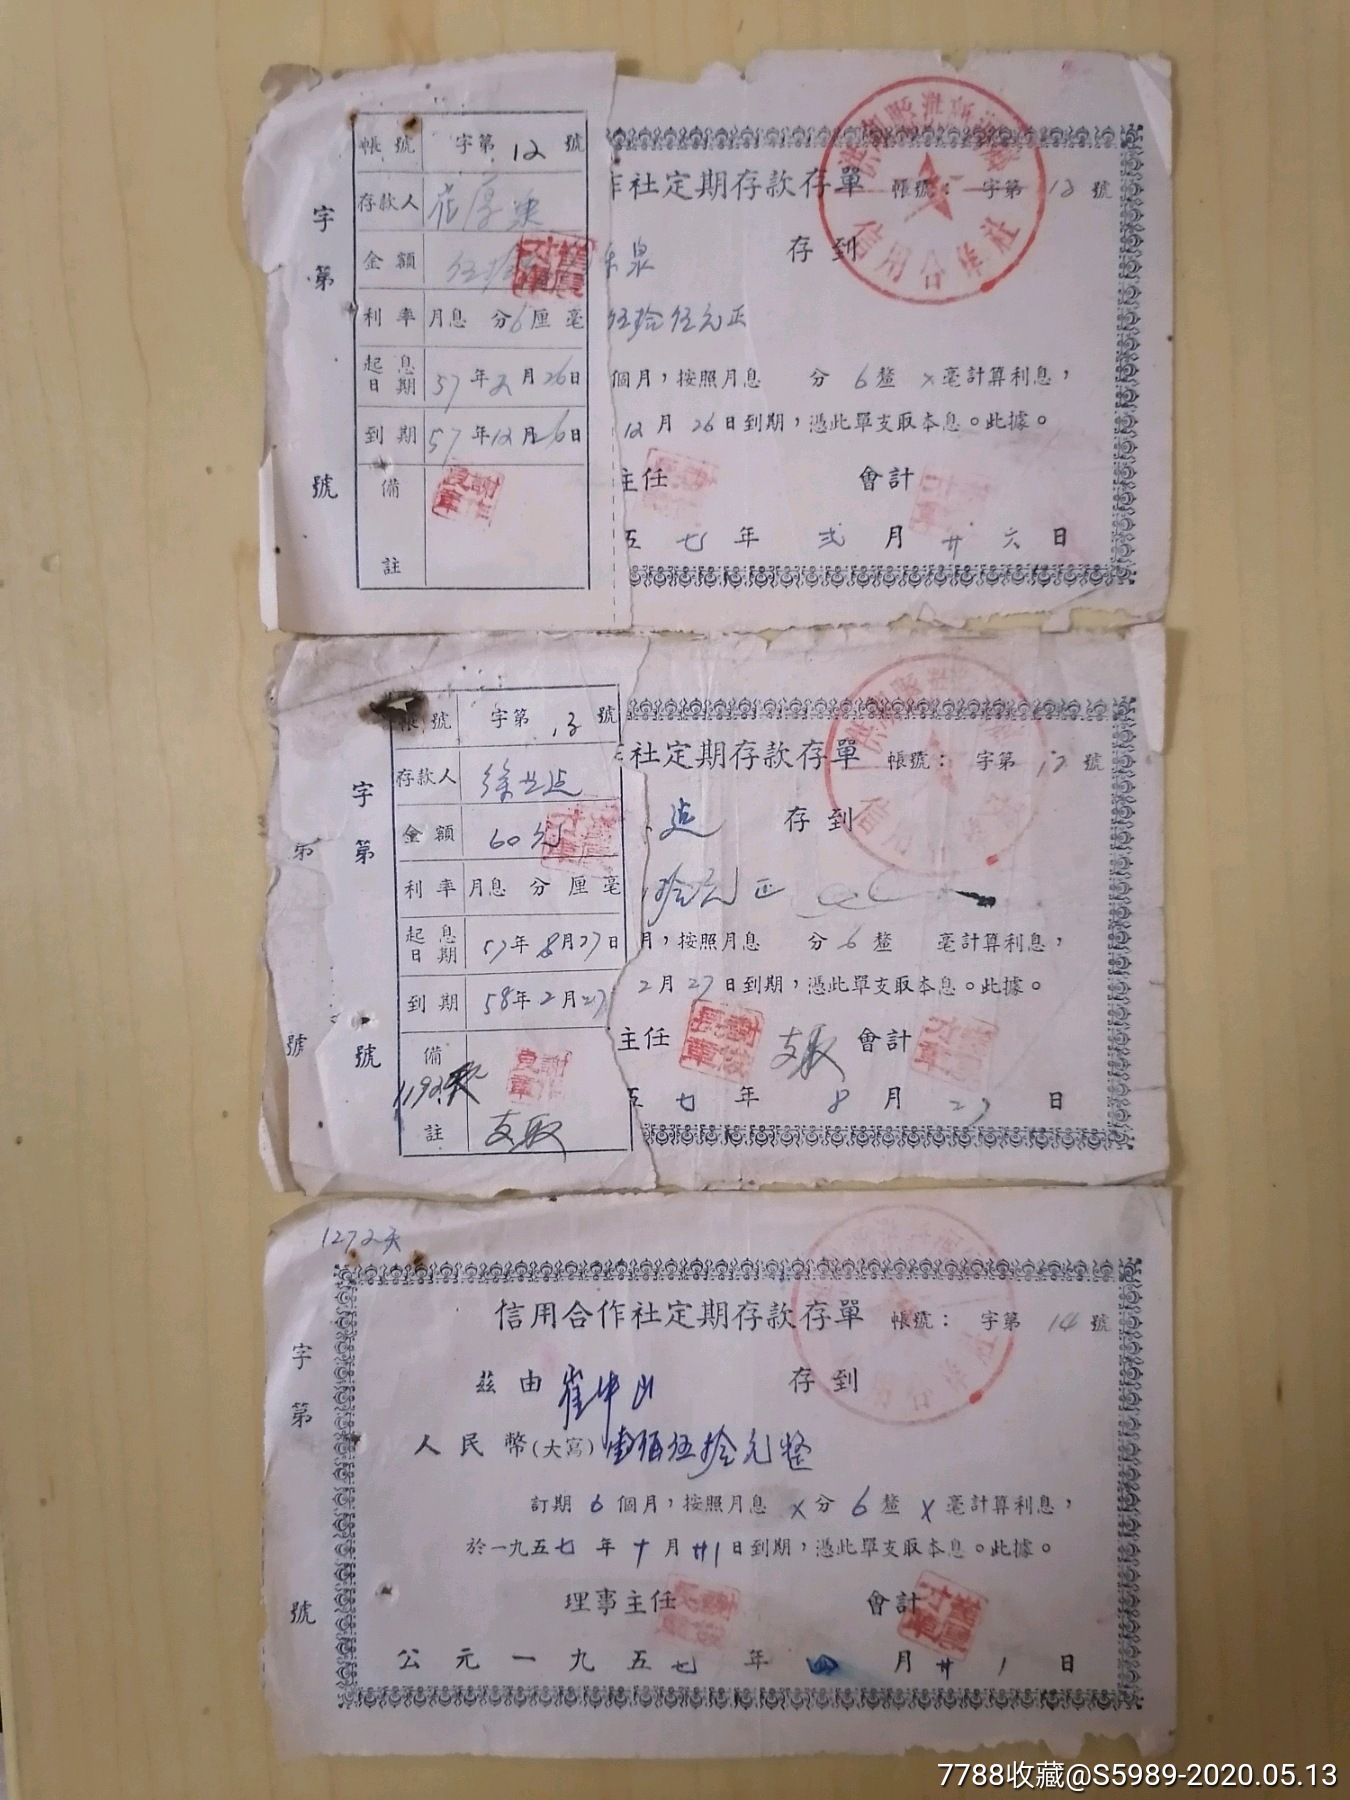 帳號 字第 12 號
存款人
金額 伍拾
利率 月息 分6厘 毫
起息日期 57年2月26日
到期 57年12月26日
備註
字第 號
社定期存款存單 帳號： 字第 12 號
泉 存到
伍拾伍元正
個月，按照月息 分 6 釐 x 毫計算利息，
12 月 26 日到期，憑此單支取本息。此據。
主任 會計
五 七 年 弍 月 廿 六 日
信用合作社
帳號 字第 13 號
存款人 徐
金額 60元
利率 月息 分 厘 毫
起息日期 57年8月27日
到期 58年2月27
備註
支取
字第 號
第 號
社定期存款存單 帳號： 字第 號
存到
拾元正
月，按照月息 分 6 釐 毫計算利息，
2 月 27 日到期，憑此單支取本息。此據。
主任 支取 會計
七 年 8 月 27 日
1272天
字第 號
信用合作社定期存款存單 帳號： 字第 14 號
茲由 崔中山 存到
人民幣(大寫) 壹佰伍拾元整
訂期 6 個月，按照月息 x 分 6 釐 x 毫計算利息，
於一九五七年十月廿1日到期，憑此單支取本息。此據。
理事主任 會計
公元一九五七年四月廿1日
7788收藏@S5989-2020.05.13